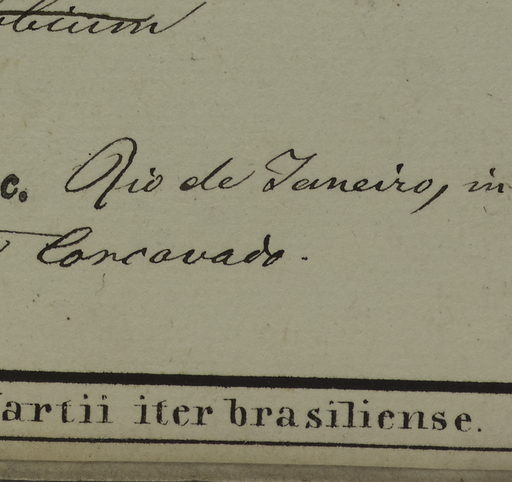 c. Rio de Janeiro, in
Corcovado.
artii iter brasiliense.